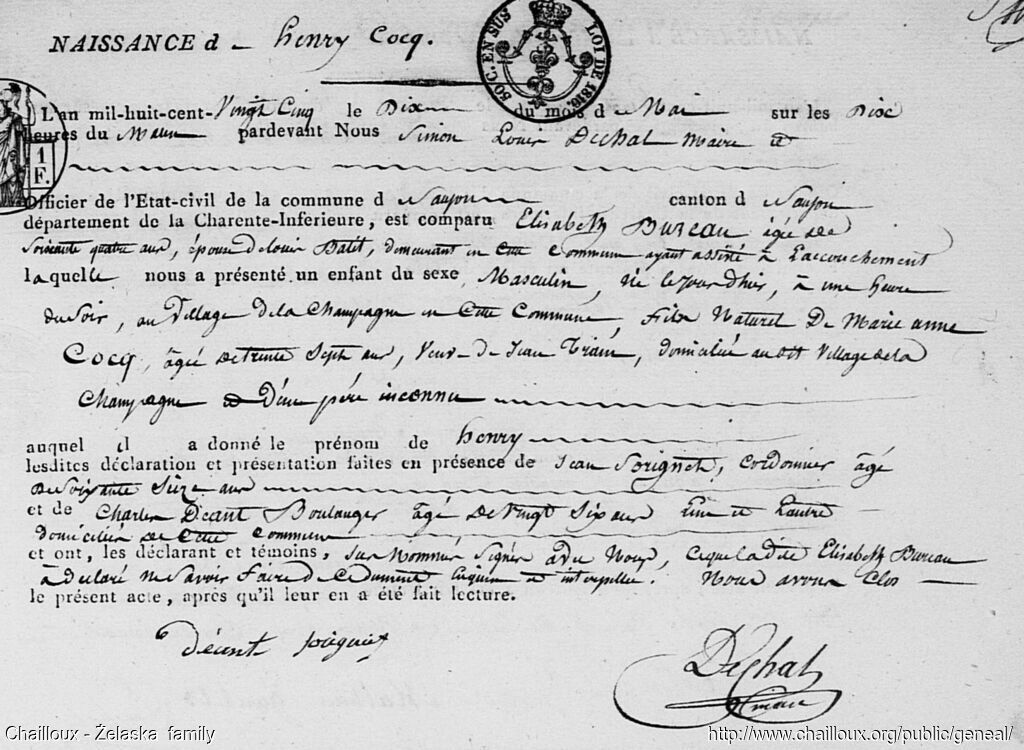 NAISSANCE d henry Cocq.
SOC. EN SUS LOI DE 1816.
1 F.
L'an mil-huit-cent-Vingt Cinq le Dix du mois d Mai sur les Dix
heures du Matin pardevant Nous Simon Louis Dechal Maire et
Officier de l'Etat-civil de la commune d Saujon canton d Saujon
département de la Charente-Inferieure, est comparu Elisabeth Bureau âgée de
Soixante quatre ans, épouse de Louis demeurant en Cette Commune ayant assisté à L'accouchement
laquelle nous a présenté un enfant du sexe Masculin, Né le jour d'hier, à une heure
du Soir, au Village de la Champagne en Cette Commune, Fils Naturel De Marie anne
Cocq, âgée de trente Sept ans, Veuve de Jean domiciliée au dit Village de la
Champagne et D'un père inconnu
auquel il a donné le prénom de henry
lesdites déclaration et présentation faites en présence de Jean Sorignet, Cordonnier âgé
De Soixante Seize ans
et de Charles Décant Boulanger âgé De Vingt Six ans L'un et L'autre
domiciliés de Cette Commune
et ont, les déclarant et témoins, Sus Nommés Signés avec Nous, Ce que ladite Elisabeth Bureau
à déclaré ne Savoir Faire de Ce Dument Enquise et interpellée. Nous avons Clos
le présent acte, après qu'il leur en a été fait lecture.
Décant Sorignet
DeChal
maire
Chailloux - Żelaska family http://www.chailloux.org/public/geneal/